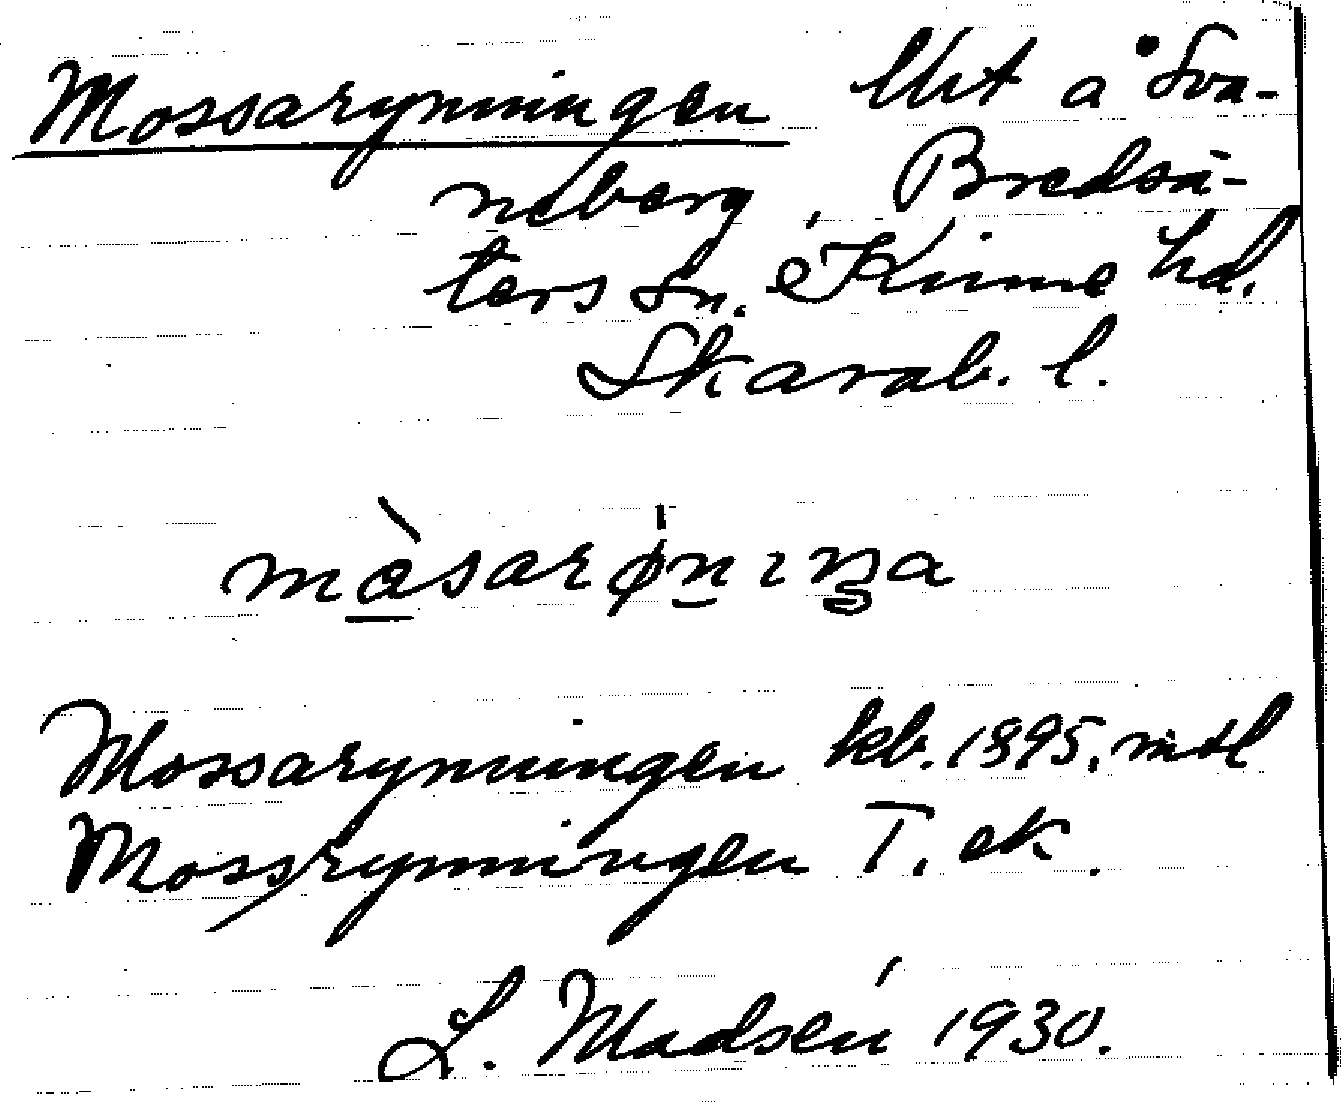 Mossarynningen Utet å Sva-
neberg, Bredsä-
ters sn. Kinne hd.
Skarab. l.
màsarøniŋa
Mossarynningen kb. 1895, mtl
Mossrynningen T. ek.
L. Madsén 1930.